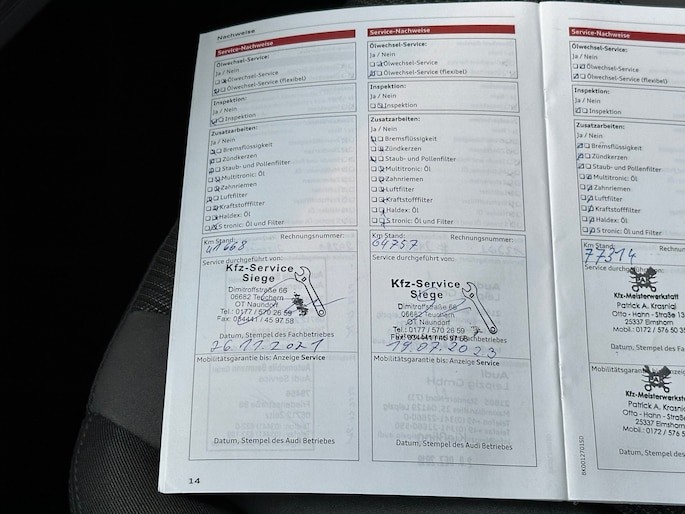 Nachweise
Service-Nachweise
Ölwechsel-Service:
Ja / Nein
Ölwechsel-Service
Ölwechsel-Service (flexibel)
Inspektion:
Ja / Nein
Inspektion
Zusatzarbeiten:
Ja / Nein
Bremsflüssigkeit
Zündkerzen
Staub- und Pollenfilter
Multitronic: Öl
Zahnriemen
Luftfilter
Kraftstofffilter
Haldex: Öl
S tronic: Öl und Filter
Km Stand: Rechnungsnummer:
41668
Service durchgeführt von:
Kfz-Service
Siege
Dimitroffstraße 66
06682 Teuchern
OT Naundorf
Tel.: 0177 / 570 26 59
Fax: 034441 / 45 97 58
Datum, Stempel des Fachbetriebes
26.11.2021
Mobilitätsgarantie bis: Anzeige Service
Datum, Stempel des Audi Betriebes
14
Service-Nachweise
Ölwechsel-Service:
Ja / Nein
Ölwechsel-Service
Ölwechsel-Service (flexibel)
Inspektion:
Ja / Nein
Inspektion
Zusatzarbeiten:
Ja / Nein
Bremsflüssigkeit
Zündkerzen
Staub- und Pollenfilter
Multitronic: Öl
Zahnriemen
Luftfilter
Kraftstofffilter
Haldex: Öl
S tronic: Öl und Filter
Km Stand: Rechnungsnummer:
64757
Service durchgeführt von:
Kfz-Service
Siege
Dimitroffstraße 66
06682 Teuchern
OT Naundorf
Tel.: 0177 / 570 26 59
Fax: 034441 / 45 97 58
Datum, Stempel des Fachbetriebes
19.07.2023
Mobilitätsgarantie bis: Anzeige Service
Datum, Stempel des Audi Betriebes
Service-Nachweise
Ölwechsel-Service:
Ja / Nein
Ölwechsel-Service
Ölwechsel-Service (flexibel)
Inspektion:
Ja / Nein
Inspektion
Zusatzarbeiten:
Ja / Nein
Bremsflüssigkeit
Zündkerzen
Staub- und Pollenfilter
Multitronic: Öl
Zahnriemen
Luftfilter
Kraftstofffilter
Haldex: Öl
S tronic: Öl und Filter
Km Stand: Rechnungsnumm
77314
Service durchgeführt
Kfz-Meisterwerkstatt
Patrick A. Krasniqi
Otto - Hahn - Straße 13
25337 Elmshorn
Mobil.: 0172 / 576 50 35
Datum, Stempel des Fa
Mobilitätsgarantie
Kfz-Meisterwerkst
Patrick A. Krasniqi
Otto - Hahn - Straß
25337 Elmshorn
Mobil.: 0172 / 576 5
Datum, Stempel des Au
BK001270150